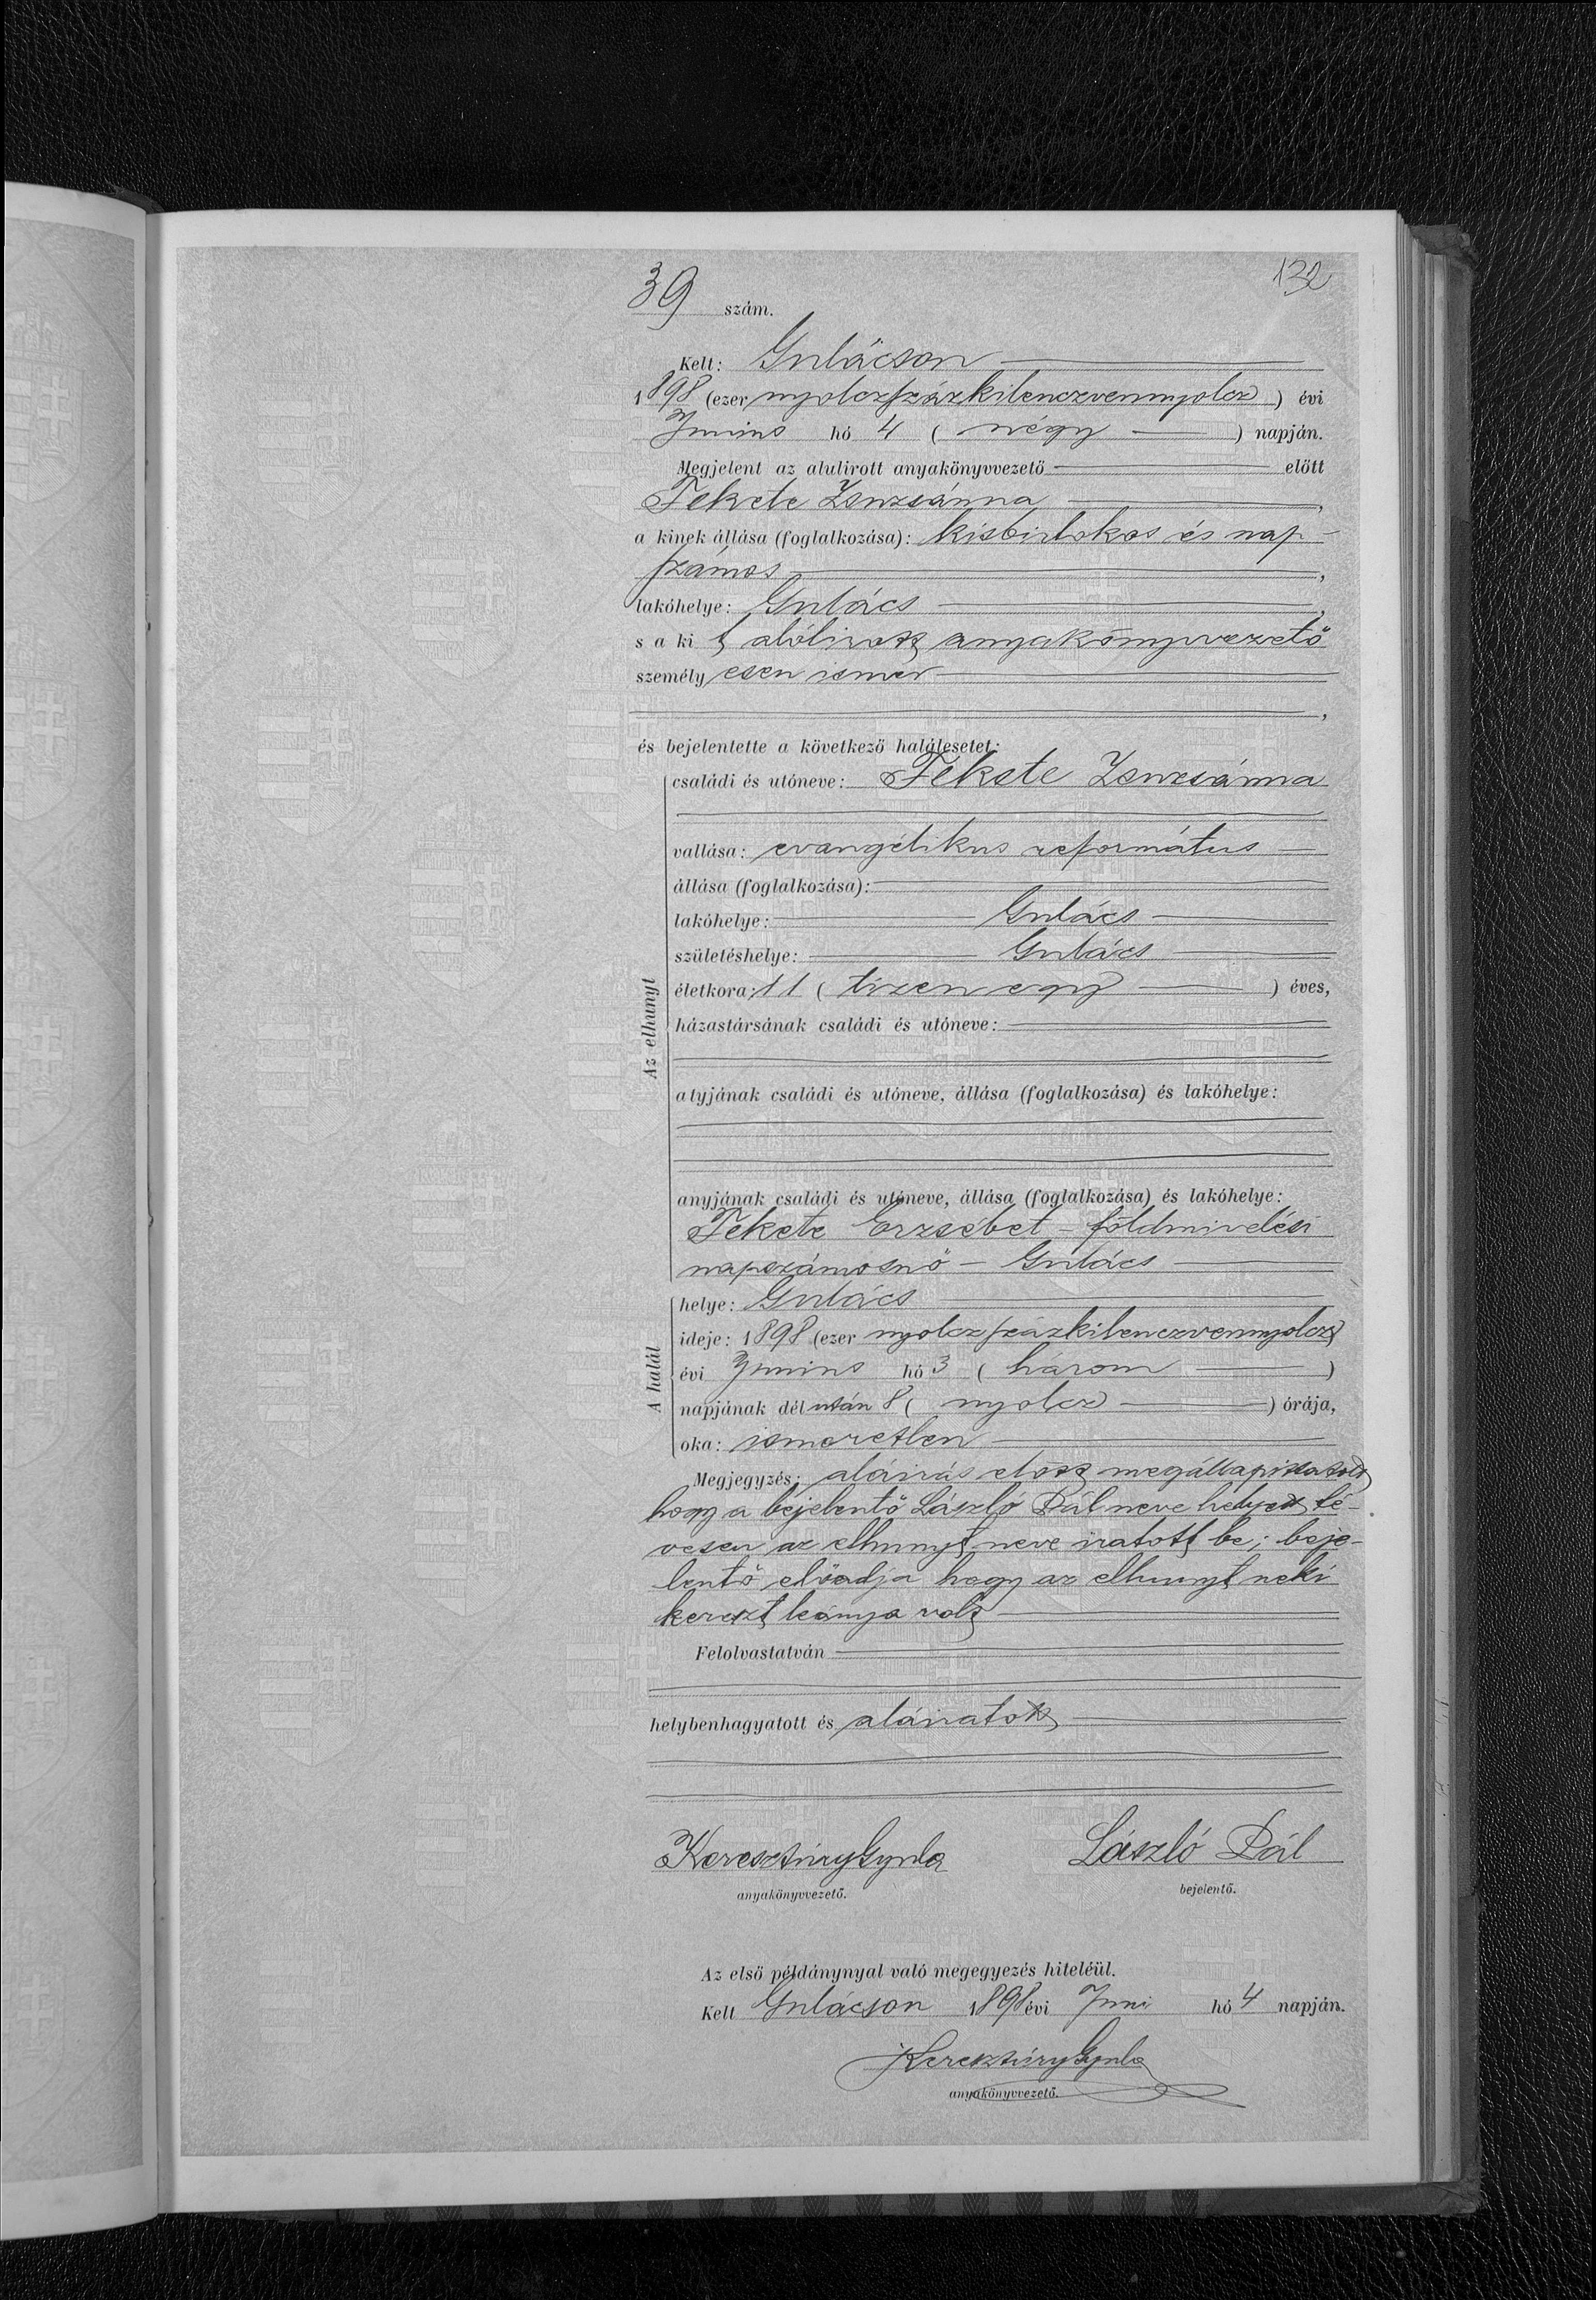 132
39 szám.
Kelt: Gulácson
1898 (ezer nyolczszázkilenczvennyolcz) évi
Junius hó 4 ( négy ) napján.
Megjelent az alulirott anyakönyvvezető előtt
Fekete Zsuzsánna,
a kinek állása (foglalkozása): kisbirtokos és nap-
számos,
lakóhelye: Gulács,
s a kit alólirott anyakönyvvezető
személyesen ismer
,
és bejelentette a következő halálesetet:
Az elhunyt
családi és utóneve: Fekete Zsuzsánna
vallása: evangélikus református
állása (foglalkozása):
lakóhelye: Gulács
születéshelye: Gulács
életkora: 11 ( tizenegy ) éves,
házastársának családi és utóneve:
atyjának családi és utóneve, állása (foglalkozása) és lakóhelye:
anyjának családi és utóneve, állása (foglalkozása) és lakóhelye:
Fekete Erzsébet - földmivelési
napszámosnő - Gulács
A halál
helye: Gulács
ideje: 1898 (ezer nyolczszázkilenczvennyolcz)
évi Junius hó 3 ( három )
napjának délután 8 ( nyolcz ) órája,
oka: ismeretlen
Megjegyzés: aláirás előtt megállapittatott
hogy a bejelentő László Pál neve helyett té-
vesen az elhunyt neve iratott be; beje-
lentő előadja hogy az elhunyt neki
kereszt leánya volt
Felolvastatván
helybenhagyatott és aláiratott
Keresztúry Gyula László Pál
anyakönyvvezető. bejelentő.
Az első példánynyal való megegyezés hiteléül.
Kelt Gulácson 1898 évi Juni hó 4 napján.
Keresztúry Gyula
anyakönyvvezető.